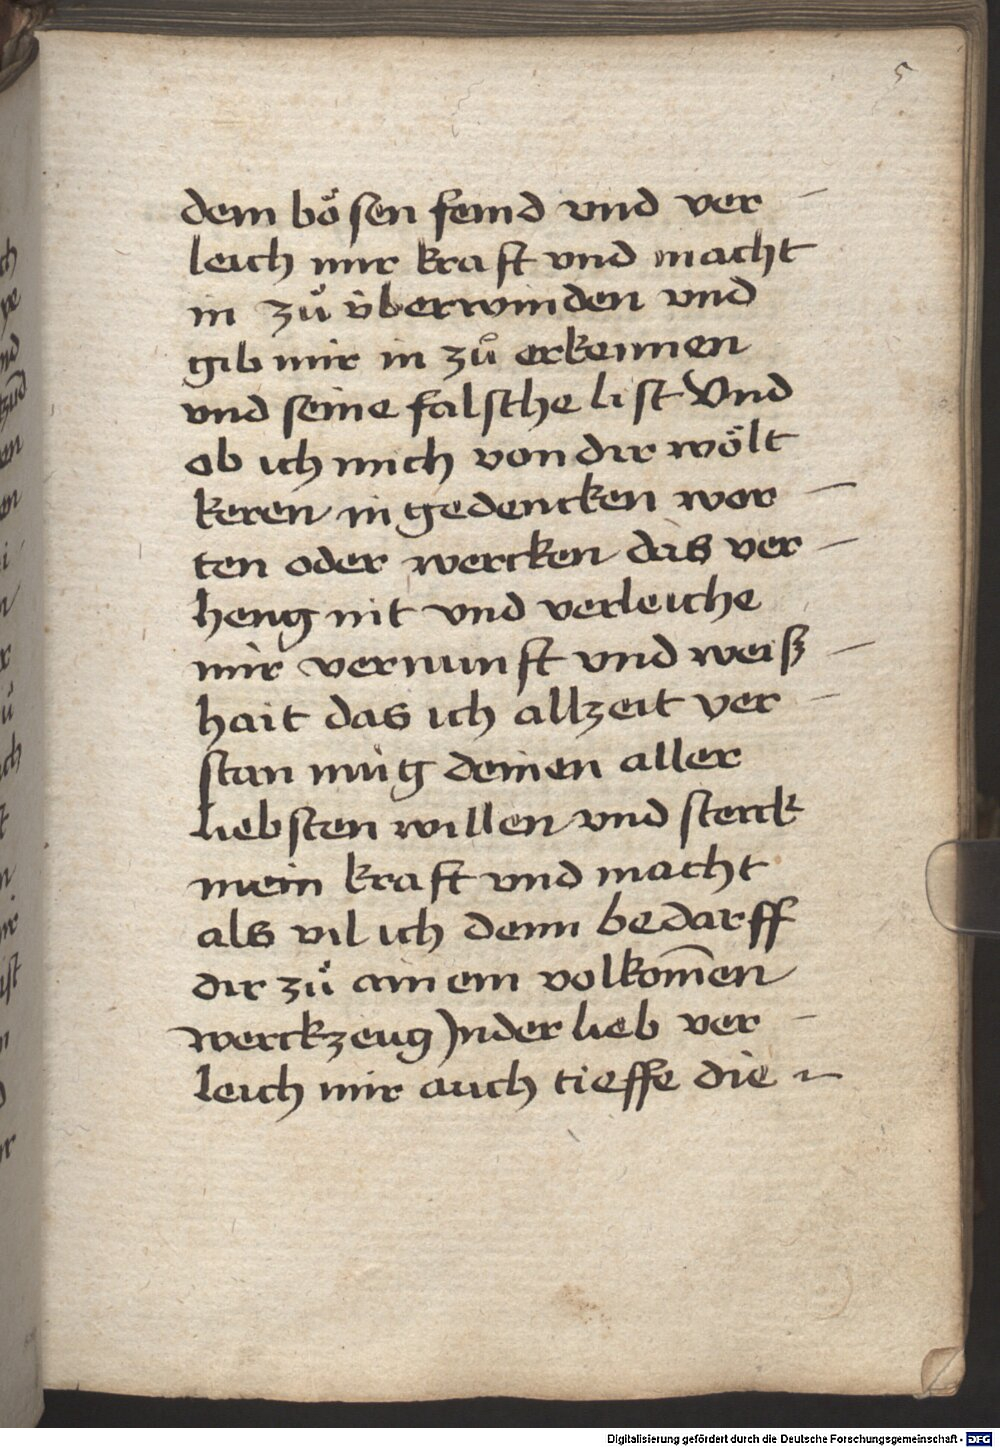 5
dem bösen feind vnd ver
leich mir kraft vnd macht
in zů v̈berwinden vnd
gib mir in zů erkennen
vnd seine falsche list Vnd
ob ich mich von dir wölt
keren in gedencken wor
ten oder wercken das ver
heng nit vnd verleiche
mir vernunft vnd weiß
hait das ich allzeit ver
stan müg deinen aller
liebsten willen vnd sterck
mein kraft vnd macht
als vil ich denn bedarff
dir zů ainem volkom̄en
werckzeug Jnder lieb ver
leich mir auch tieffe die
Digitalisierung gefördert durch die Deutsche Forschungsgemeinschaft - DFG